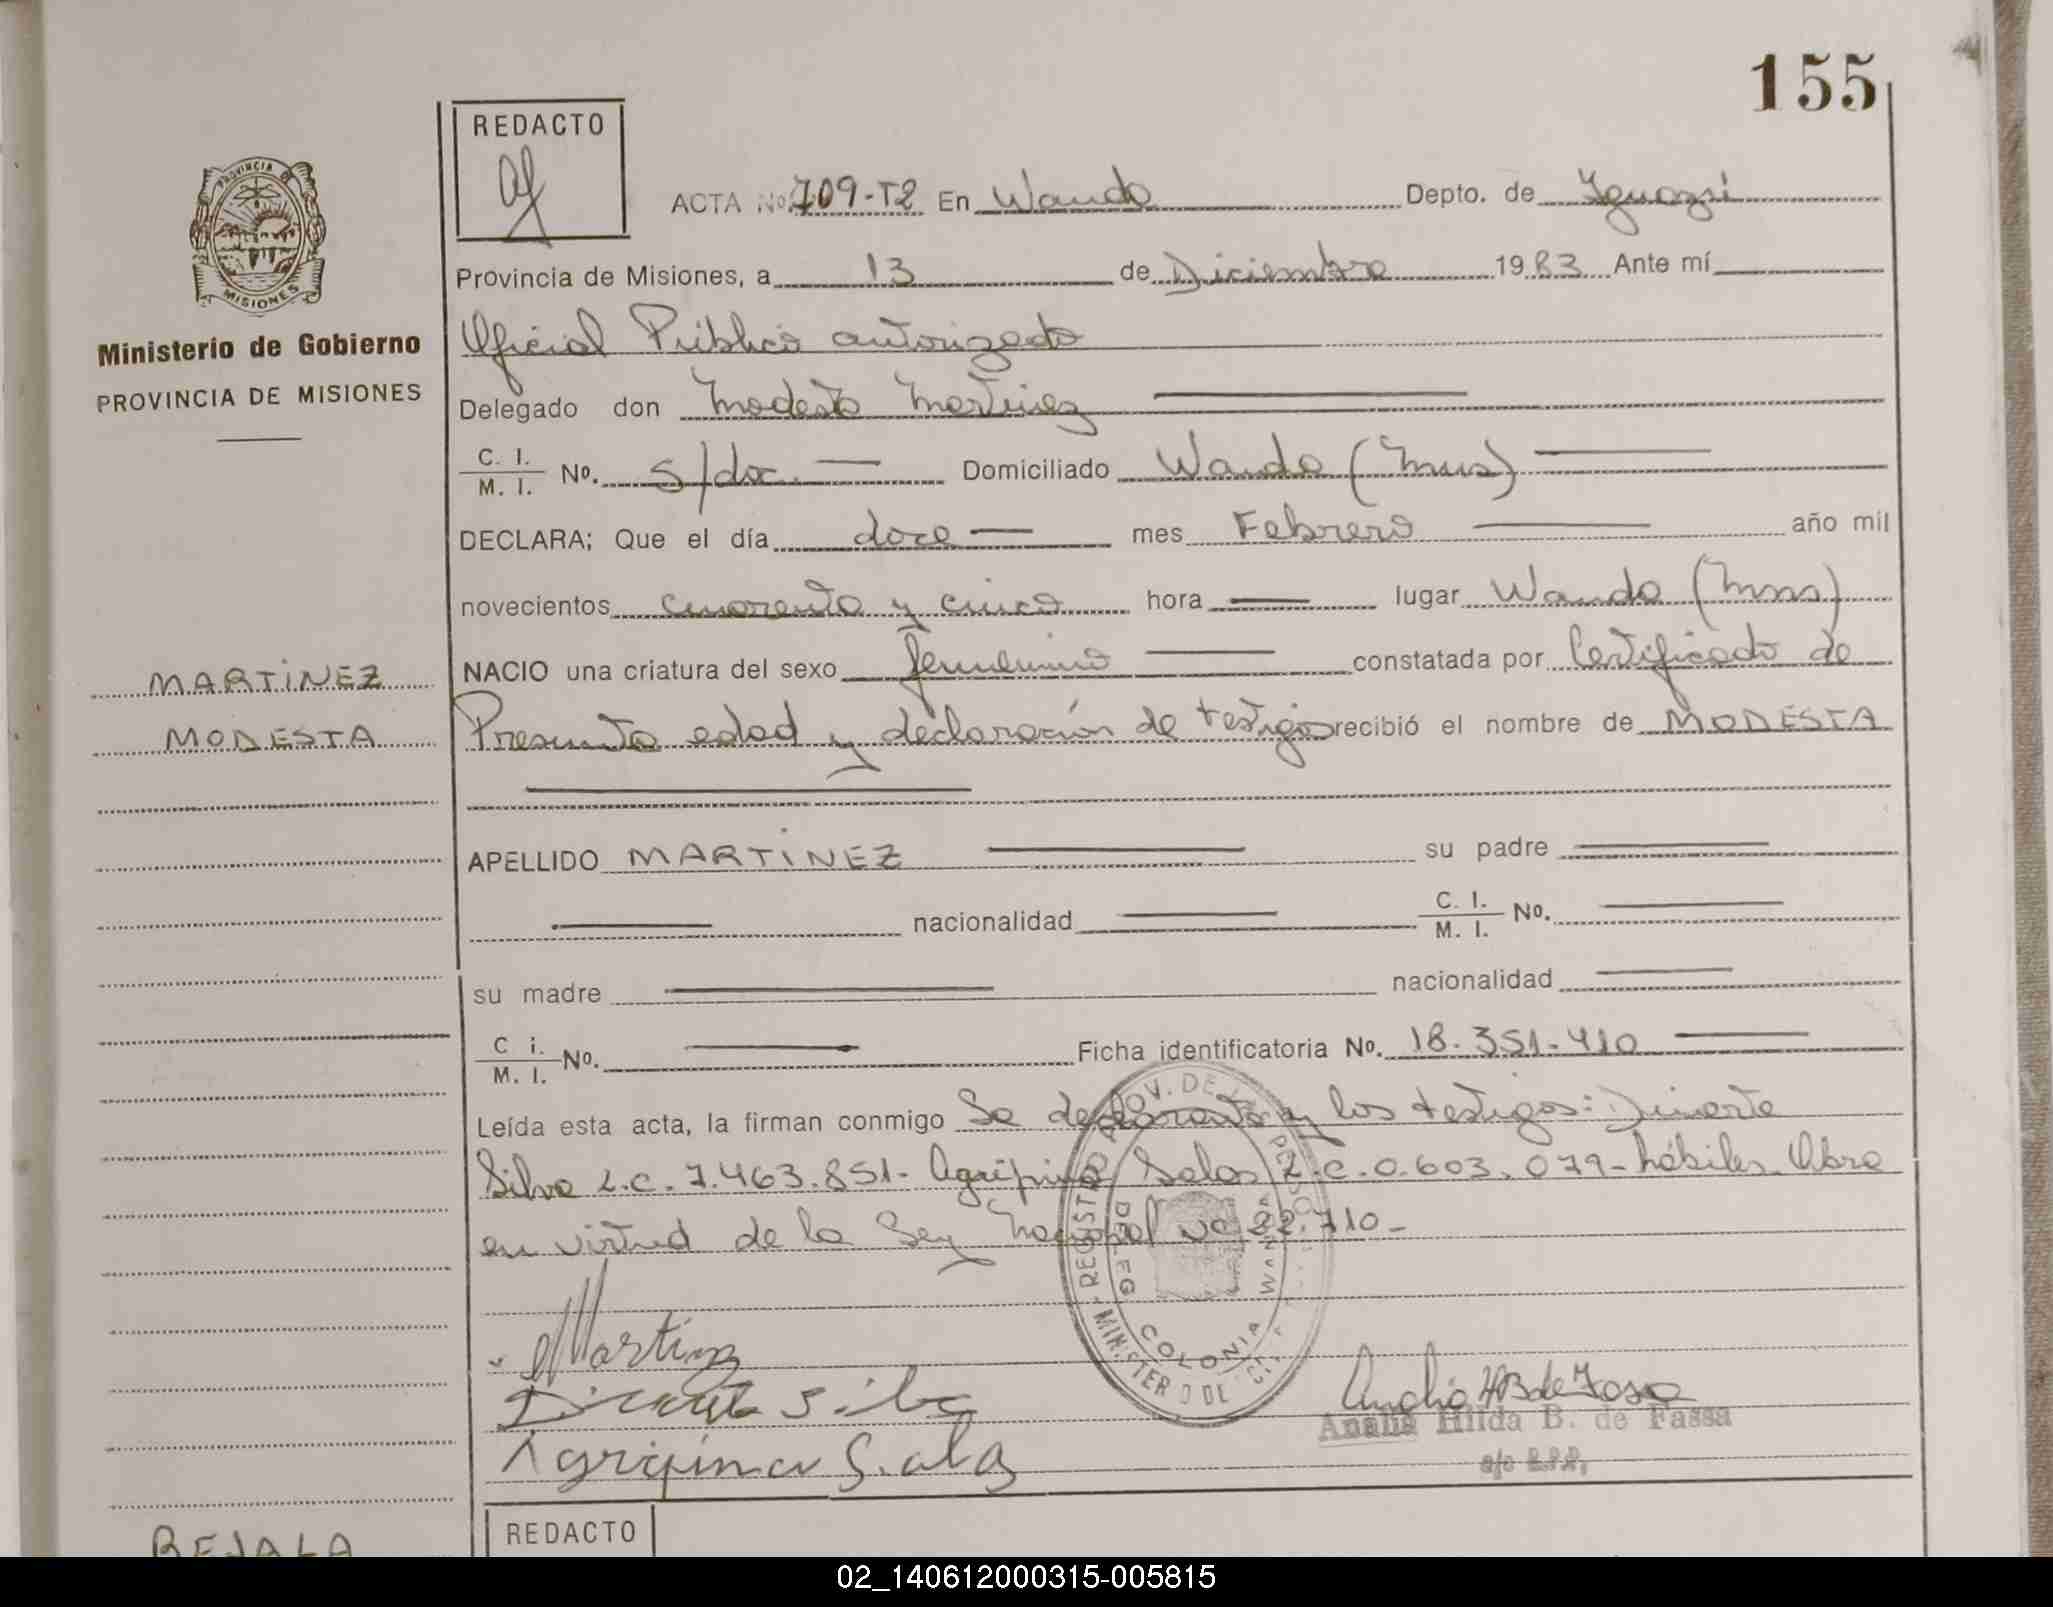 155
REDACTO
ACTA No. 709-T2 En Wanda Depto. de Iguazú
PROVINCIA DE MISIONES
Provincia de Misiones, a 13 de Diciembre 1983 Ante mí
Ministerio de Gobierno
PROVINCIA DE MISIONES
Oficial Público autorizado
Delegado don Modesta Martinez
C. I. / M. I. No. S/doc. Domiciliado Wanda (Mnes)
DECLARA; Que el día doce mes Febrero año mil
novecientos cuarenta y cinco hora lugar Wanda (Mnes)
MARTINEZ
NACIO una criatura del sexo femenino constatada por Certificado de
MODESTA
Presunta edad y declaración de testigos recibió el nombre de MODESTA
APELLIDO MARTINEZ su padre
nacionalidad C. I. / M. I. No.
su madre nacionalidad
C i. / M. I. No. Ficha identificatoria No. 18.351.410
Leída esta acta, la firman conmigo La declarante y los testigos: Duarte
Silva L.C. 7.463.851- Agripina Salas L.C. 0.603.079- hábiles. Obra
en virtud de la Ley Nacional nº 22.710-
REGISTRO PROV. DE LAS PERSONAS
DELEG. COLONIA WANDA
MINISTERIO DE
Martinez
Silva
Agripina Salas
Analia HB de Fassa
Analia Hilda B. de Fassa
REDACTO
BEJALA
02_140612000315-005815